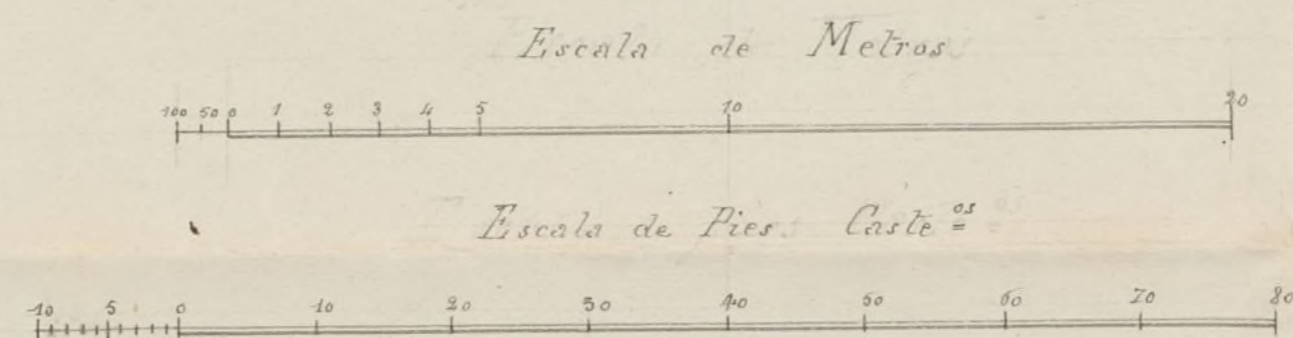 Escala de Metros
100 50 0 1 2 3 4 5 10 20
Escala de Pies Caste os
10 5 0 10 20 30 40 50 60 70 80